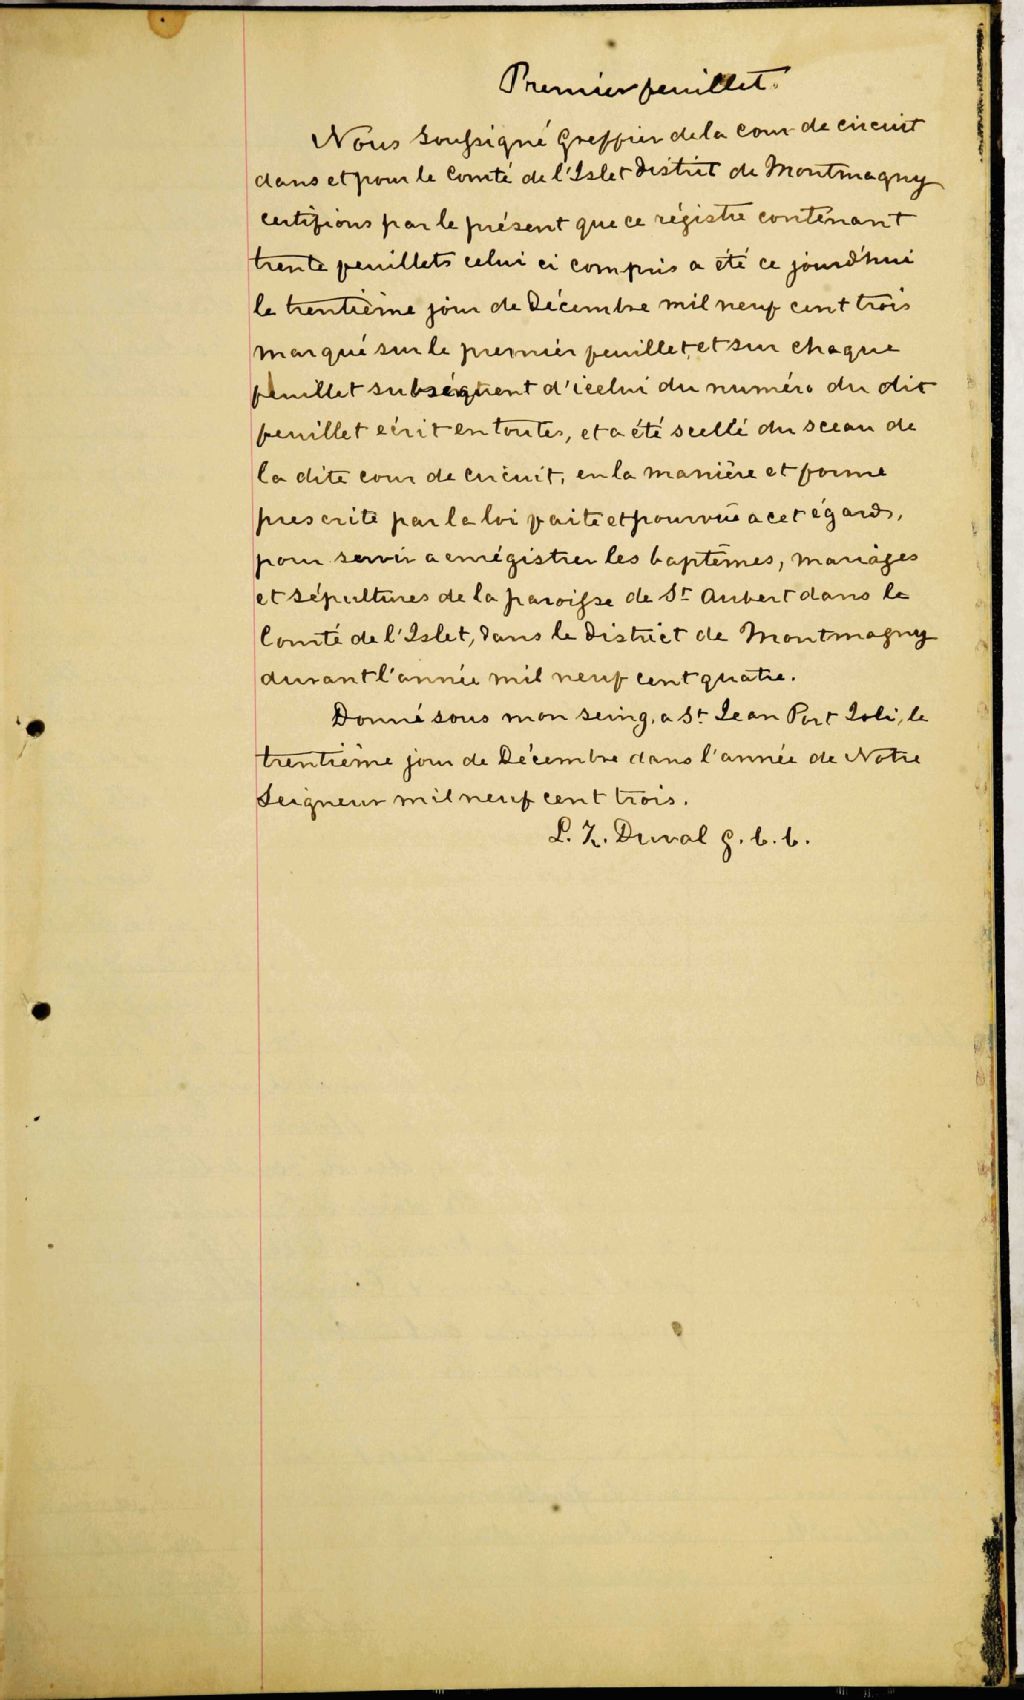 Premier feuillet.
Nous soussigné Greffier de la cour de circuit
dans et pour le Comté de l'Islet District de Montmagny
certifions par le présent que ce régistre contenant
trente feuillets celui ci compris a été ce jourd'hui
le trentième jour de Décembre mil neuf cent trois
marqué sur le premier feuillet et sur chaque
feuillet subséquent d'icelui du numéro du dit
feuillet écrit en toutes, et a été scellé du sceau de
la dite cour de circuit, en la manière et forme
prescrite par la loi faite et pourvûe a cet égard,
pour servir a enrégistrer les baptêmes, mariages
et sépultures de la paroisse de St Aubert dans le
Comté de l'Islet, dans le District de Montmagny
durant l'année mil neuf cent quatre.
Donné sous mon seing, a St Jean Port Joli, le
trentième jour de Décembre dans l'année de Notre
Seigneur mil neuf cent trois.
L. Z. Duval g. c. c.